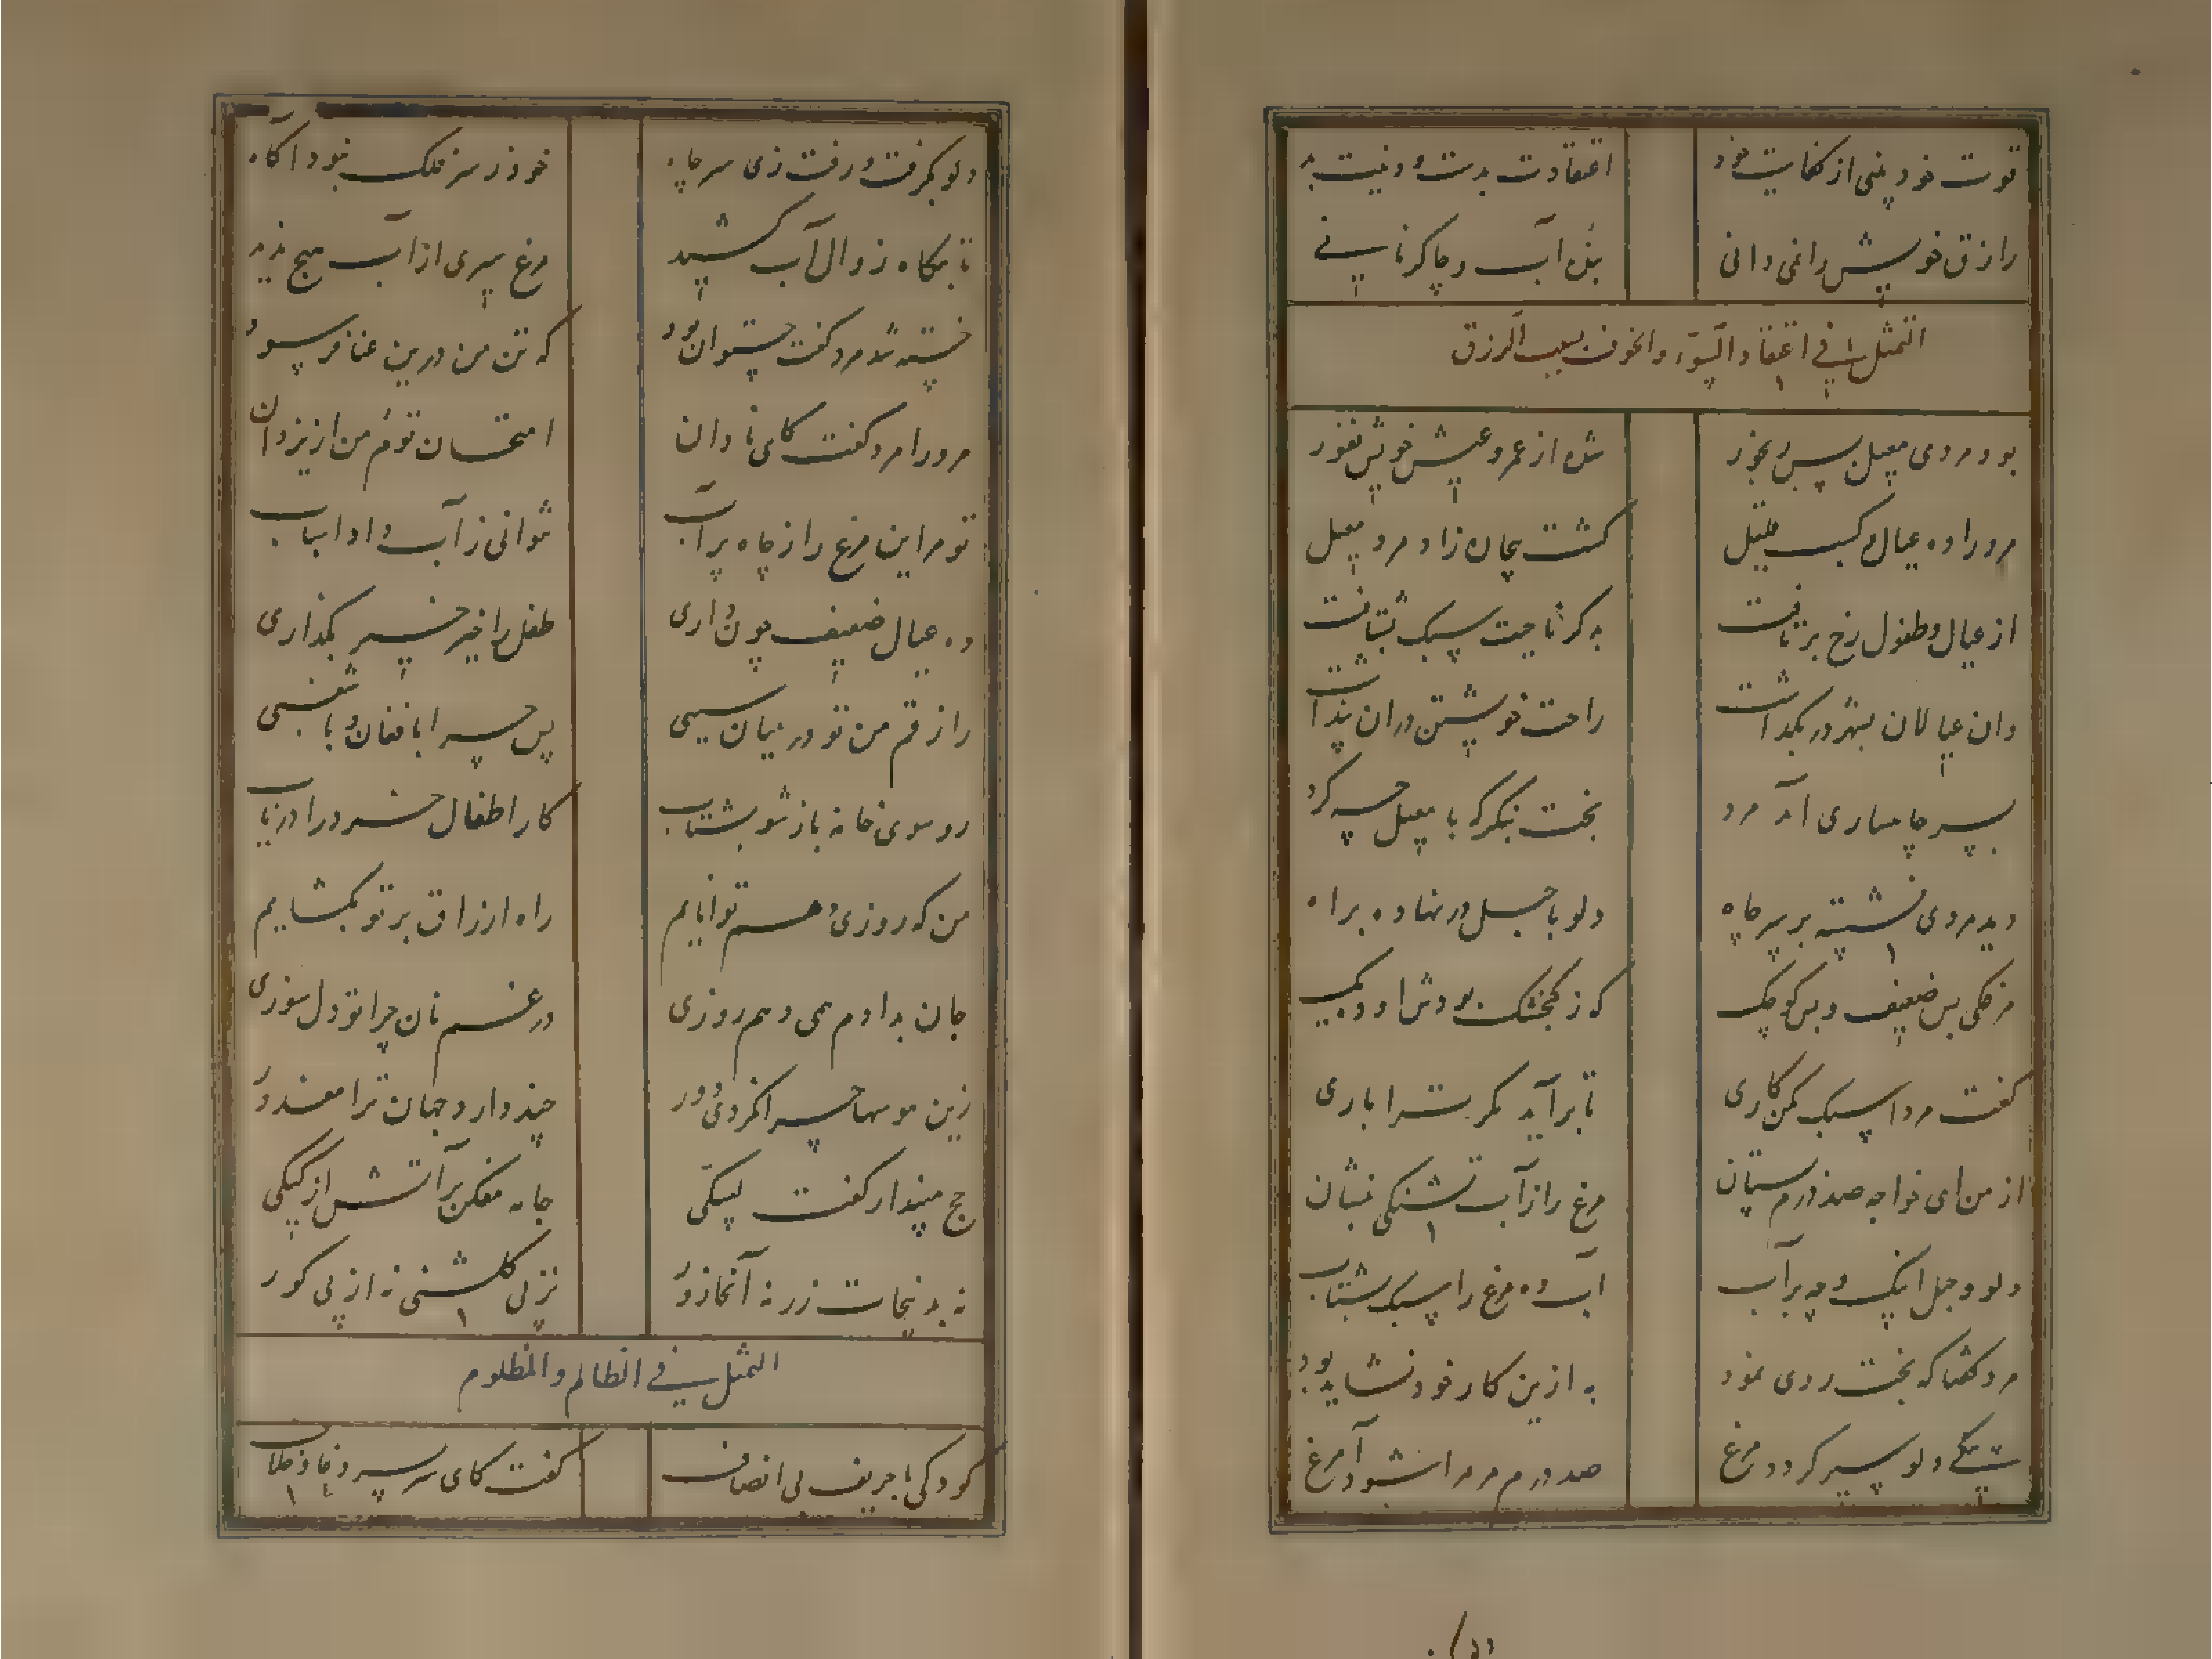 قوت خود بینی از کفایت خود اعتقادت بدست و نیت بد
رازق خویش را نمی دانی بنده آب و چاکر نانی
التمثل فی اعتقاد السوء والخوف بسبب الرزق
بود مردی معیل بس رنجور شده از عمر و عیش خویش نفور
مرورا ده عیال و کسب قلیل گشت بیچاره زاد مرد معیل
از عیال و طفول رخ برتافت بدگر ناحیت سبک بشتافت
وان عیالان بشهر در بگذاشت راحت خویشتن دران پنداشت
بسر چاهساری آمد مرد بخت بنگر که با معیل چه کرد
دید مردی نشسته بر سر چاه دلو با حبل در نهاده براه
مرغکی بس ضعیف و بس کوچک که ز گنجشک بودش او ده یک
گفت مردا سبک بکن کاری تا برآید مگر ترا باری
از من ای خواجه صد درم بستان مرغ را از آب تشنگی بنشان
دلو و حبل اینک و چه پر آب آب ده مرغ را سبک بشتاب
مرد گفتا که بخت روی نمود به ازین کار خود نشاید بود
بیکی دلو سیر گردد مرغ صد درم مر مرا شود آمرغ
دلو بگرفت و رفت زی سر چاه خود ز سر فلک نبود آگاه
تا بگاه زوال آب کشید مرغ سیری از آب هیچ ندید
خسته شد مرد گفت چتوان بود که تن من درین عنا فرسود
مرورا مرد گفت کای نادان امتحان توم من از یزدان
تو مر این مرغ را ز چاه پر آب نتوانی ز آب داد اسباب
ده عیال ضعیف چون داری طفل را خیر خیر بگذاری
رازقم من تو در میان سببی پس چرا با فغان و با شغبی
رو سوی خانه باز شو بشتاب کار اطفال خرد را دریاب
من که روزی دهم توانایم راه ارزاق بر تو بگشایم
جان بدادم همی دهم روزی در غم نان چرا تو دل سوزی
زین هوسها چرا نگردی دور چند دارد جهان ترا مغرور
حج مپندار گفت لبیکی جامه مفکن بر آتش از کیکی
نه بد نیجات زر نه آنجا زور نز پی گلشنی نه از پی گور
التمثل فی الظالم والمظلوم
کودکی با حریف بی انصاف گفت کای سر بسر دغا و خلاف